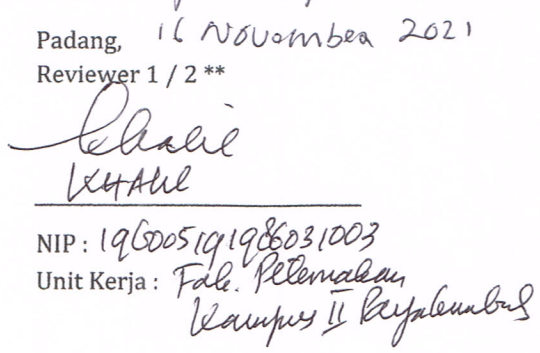 Padang, 16 November 2021
Reviewer 1 / 2 **
Khalil
KHALIL
NIP : 196005191986031003
Unit Kerja : Fak. Peternakan
Kampus II Payakumbuh